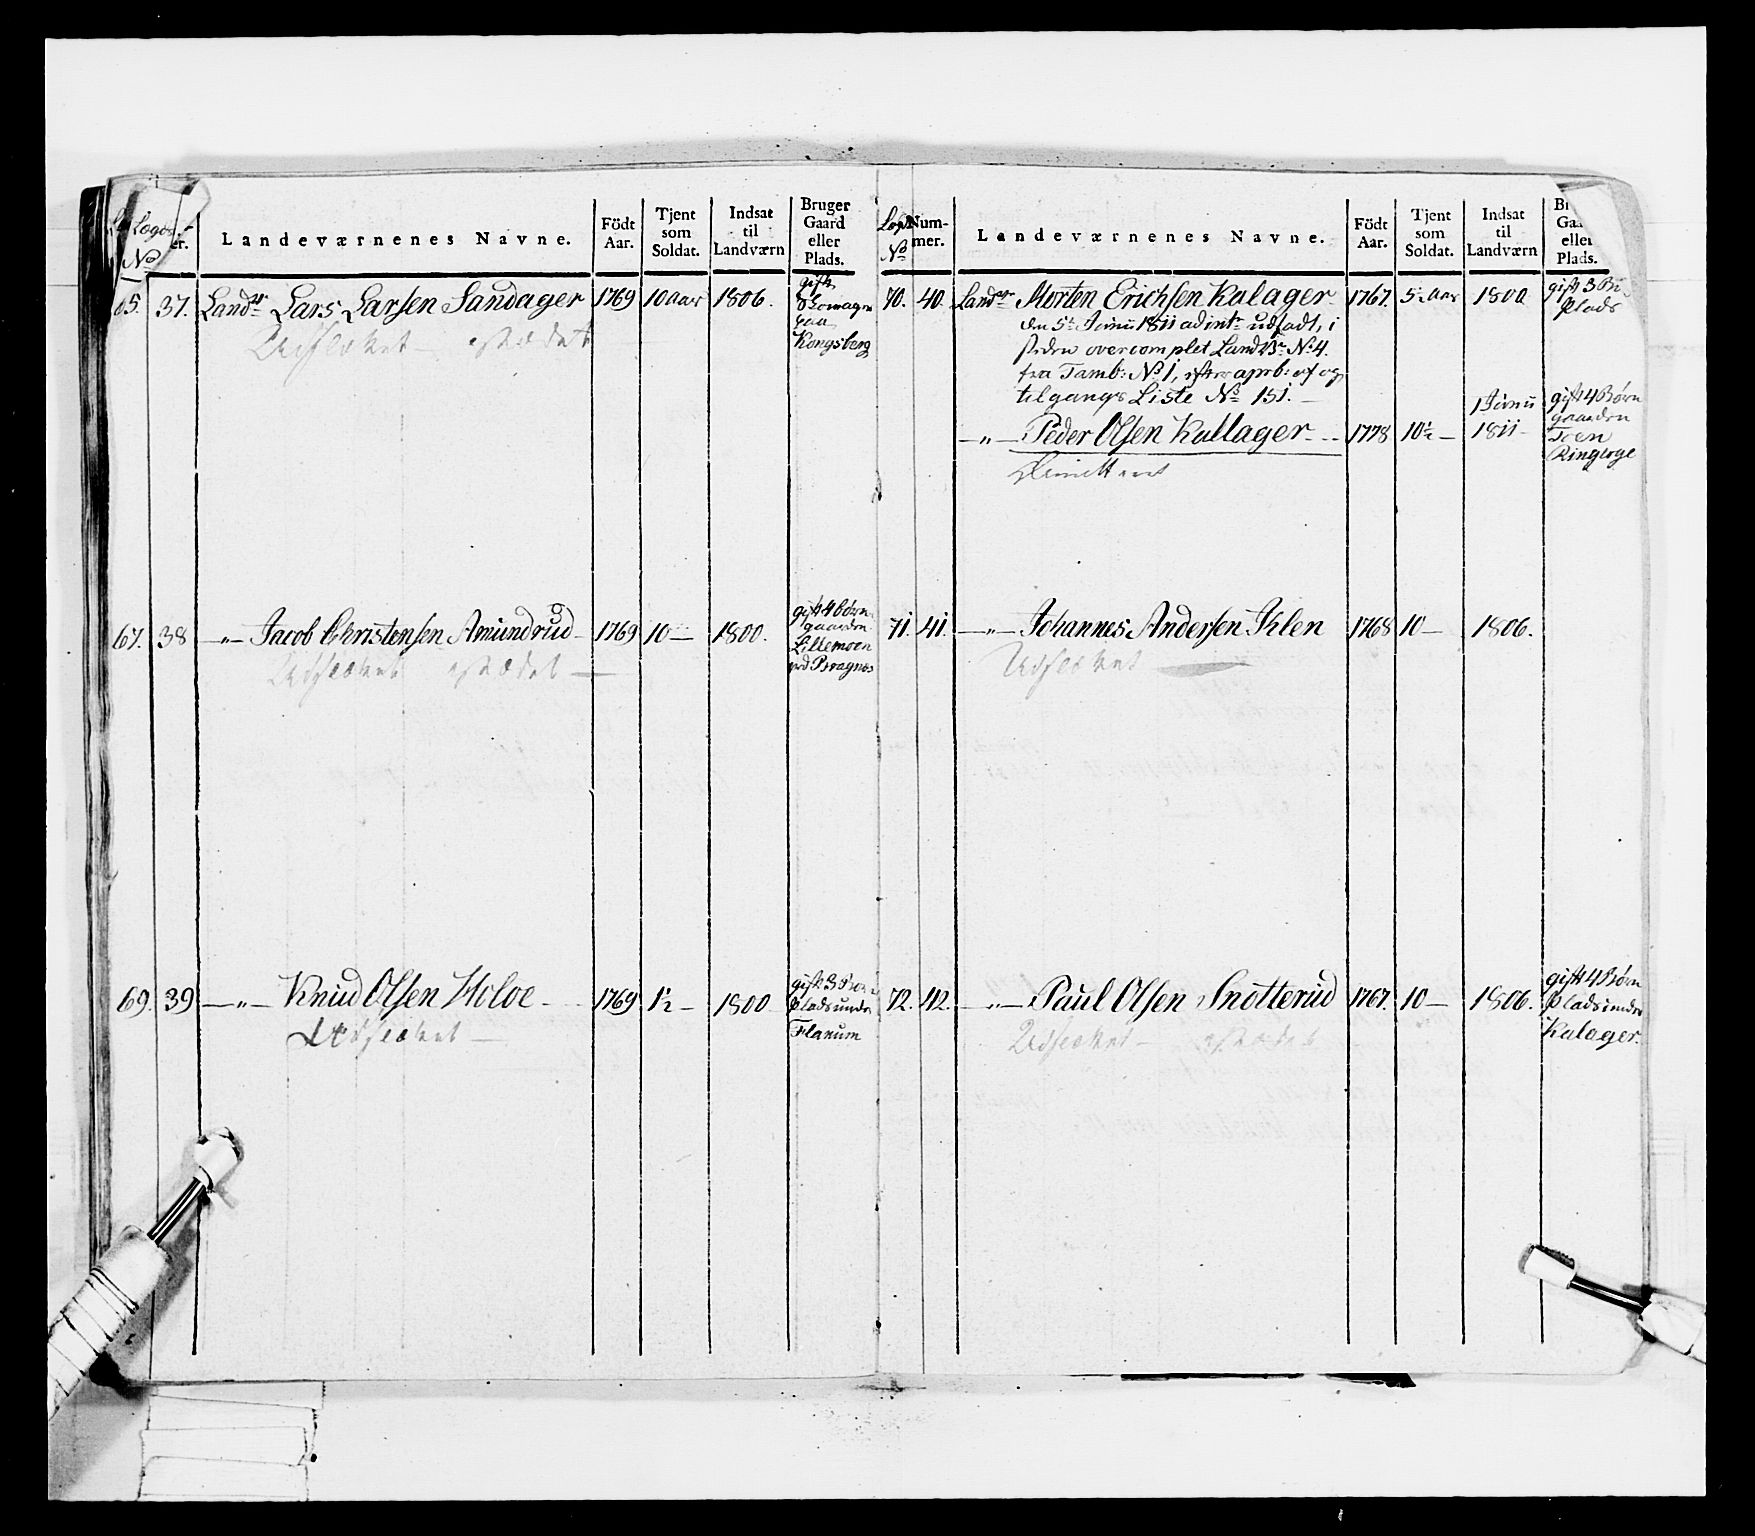 Logo-
No
er.
Landeværnenes Navne.
Födt
Aar.
Tjent
som
Soldat.
Indsat
til
Landværn
Bruger
Gaard
eller
Plads.
65. 37. Landvr Lars Larsen Sandager 1769 10 aar 1806.
gift
paa
Kongsberg
Udslættet
67. 38 —„— Jacob Christensen Amundrud 1769 10 — 1800.
gift 4 börn
gaarden
Lillemoen
ved Bragnæs
Udslættet
69. 39 —„— Knud Olsen Holoe 1769 1½ — 1800
gift 3 Börn
Plads under
Flanum
Udslættet —
No
Num-
mer.
Landeværnenes Navne.
Födt
Aar.
Tjent
som
Soldat.
Indsat
til
Landværn
Gaa
eller
Plads.
70. 40. Landvr Morten Erichsen Kalager 1767. 5 Aar 1800
gift 3 Bö
Plads
den 5te Junii 1811 ad intr udsadt, i
steden overcomplet Land Vr No 4.
fra Tamb: No 1, efter aprb: af og
tilgangs Liste No 151. —
—„— Peder Olsen Kallager 1778 10½ —
1 Junii
1811 —
gift 4 Börn
gaarden
Toen
Ringerige
Dimitteret
71. 41. —„— Johannes Andersen Iklen 1768 10 — 1806.
Udslættet
72. 42. —„— Paul Olsen Snotterud 1767. 10 — 1806.
gift 4 Börn
Plads under
Kalager.
Udslættet —